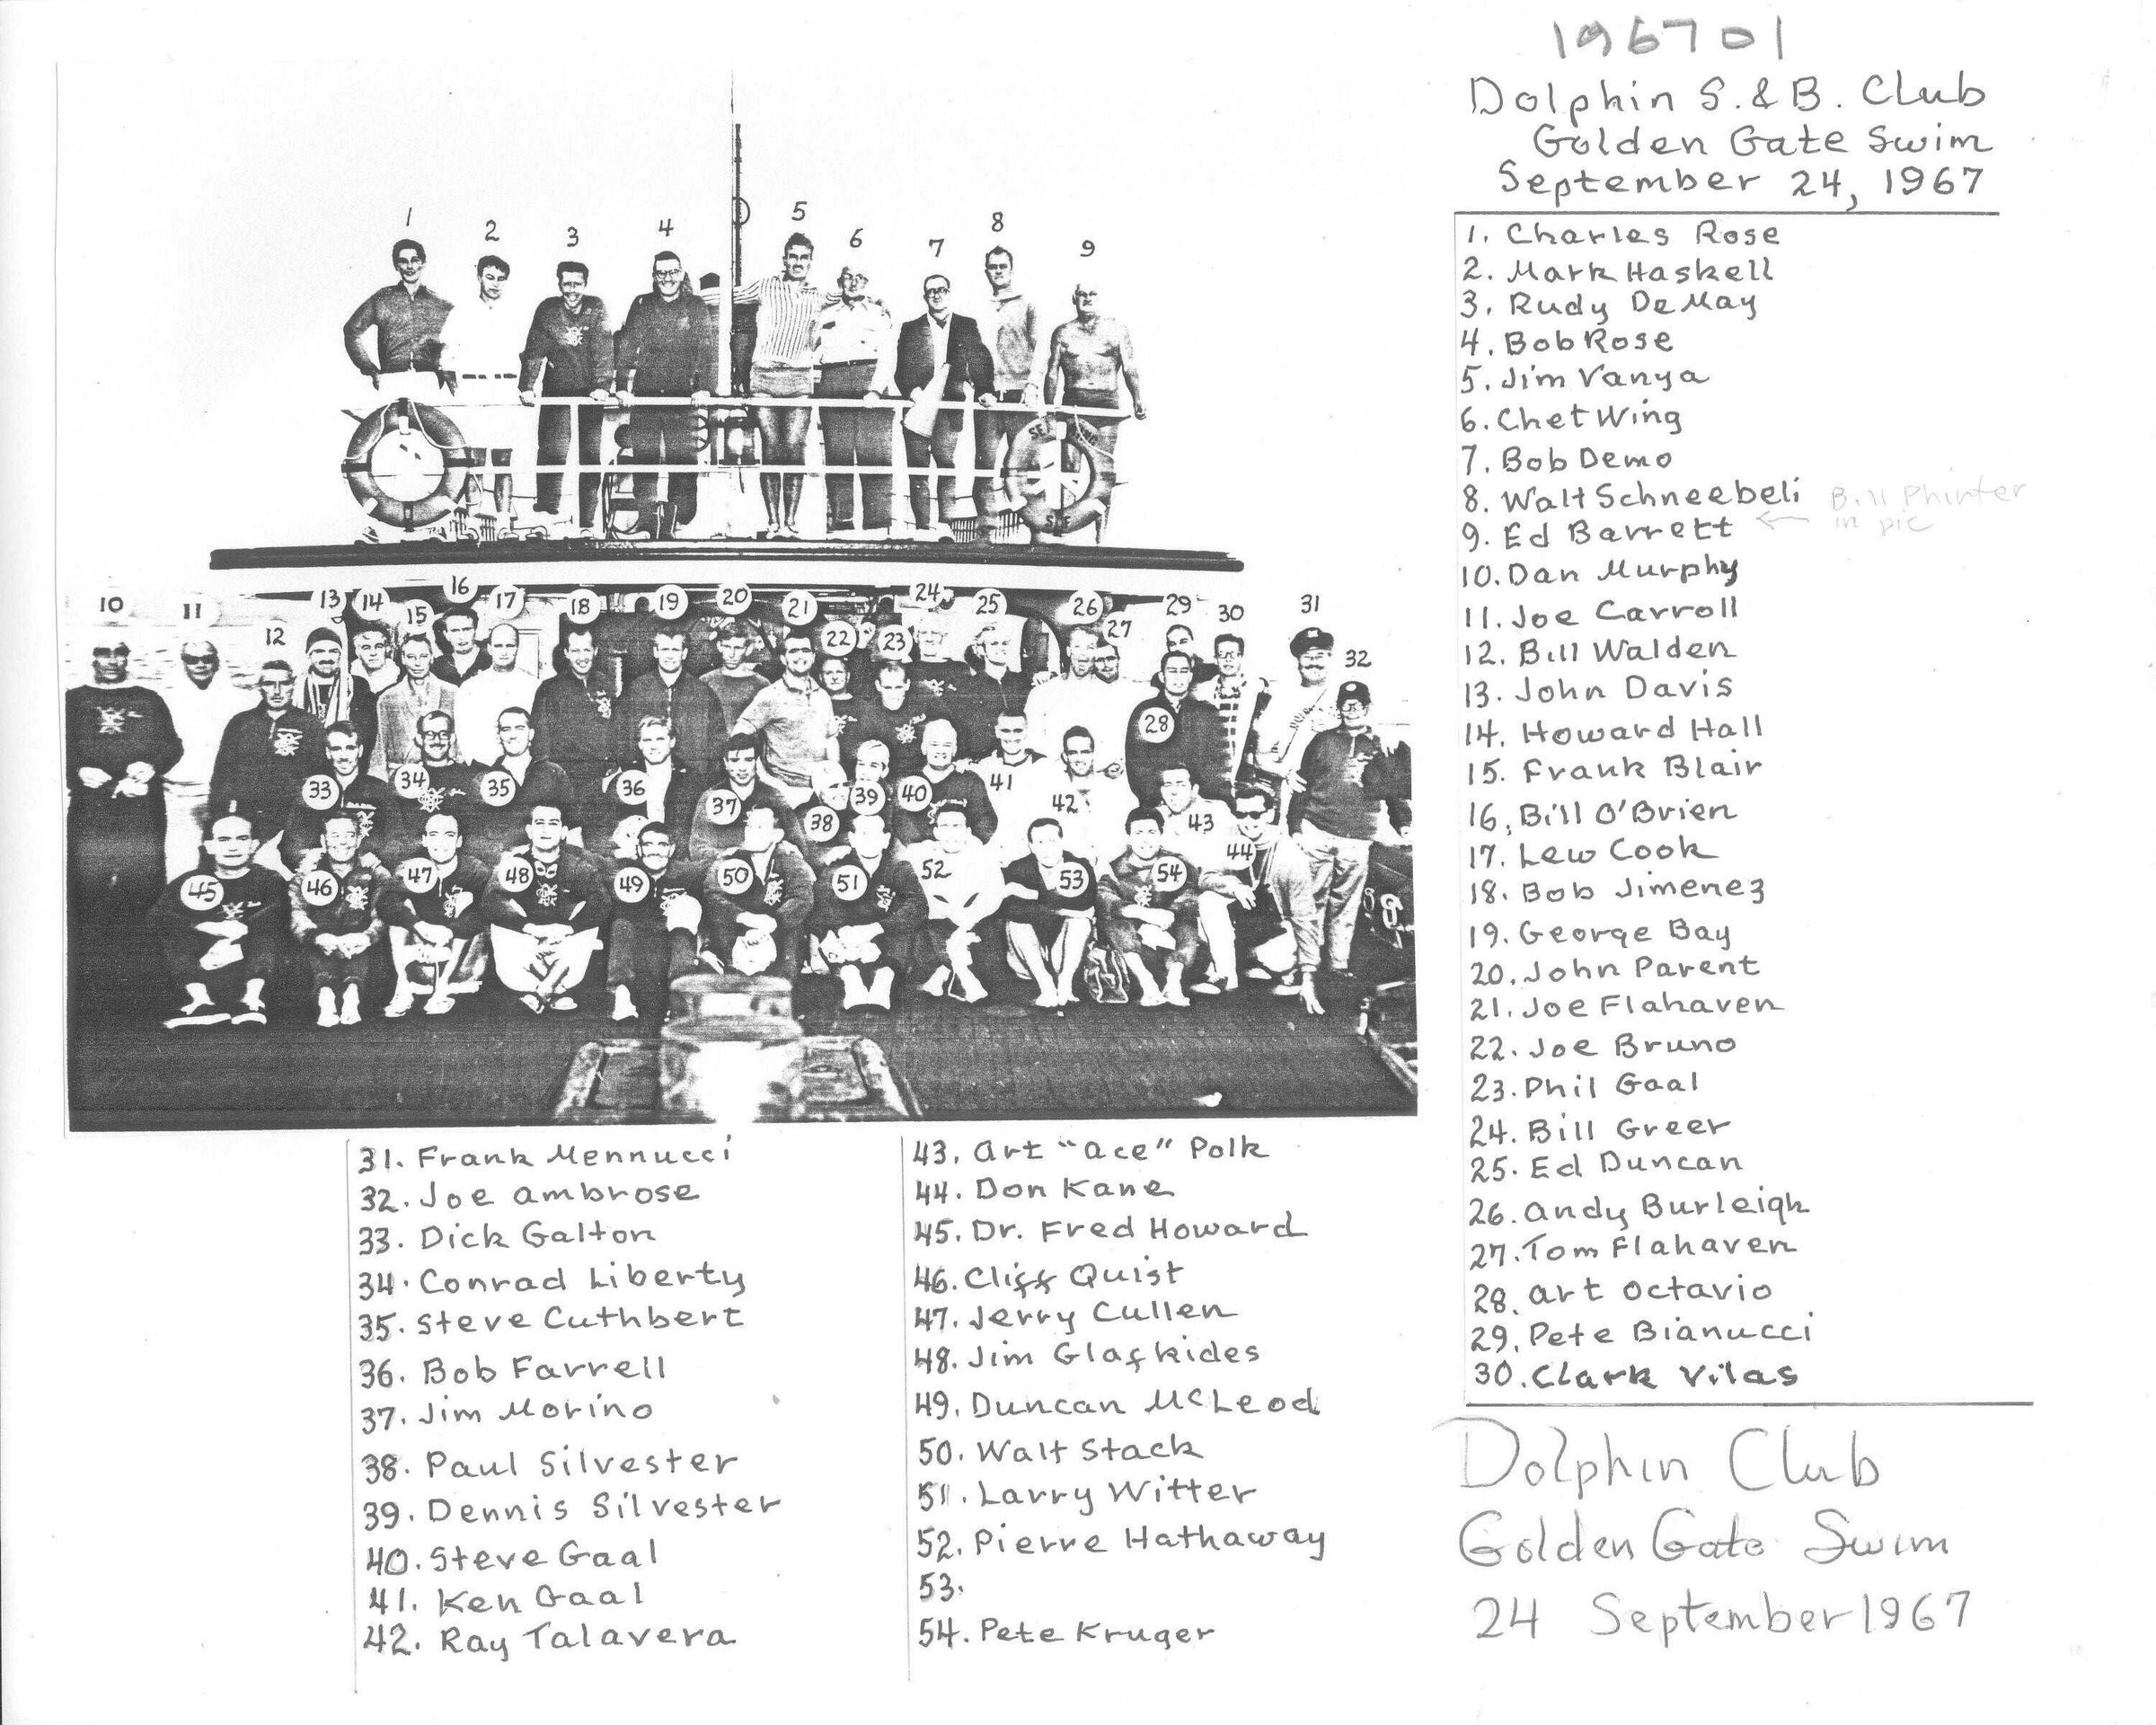 196701
Dolphin S. & B. Club
Golden Gate Swim
September 24, 1967
1 2 3 4 5 6 7 8 9
SEA
10 11 12 13 14 15 16 17 18 19 20 21 22 23 24 25 26 27 28 29 30 31 32
33 34 35 36 37 38 39 40 41 42 43 44
45 46 47 48 49 50 51 52 53 54
1. Charles Rose
2. Mark Haskell
3. Rudy DeMay
4. Bob Rose
5. Jim Vanya
6. Chet Wing
7. Bob Demo
8. Walt Schneebeli
9. Ed Barrett ← Bill
in pic
10. Dan Murphy
11. Joe Carroll
12. Bill Walden
13. John Davis
14. Howard Hall
15. Frank Blair
16. Bill O'Brien
17. Lew Cook
18. Bob Jimenez
19. George Bay
20. John Parent
21. Joe Flahaven
22. Joe Bruno
23. Phil Gaal
24. Bill Greer
25. Ed Duncan
26. Andy Burleigh
27. Tom Flahaven
28. Art Octavio
29. Pete Bianucci
30. Clark Vilas
31. Frank Mennucci
32. Joe Ambrose
33. Dick Galton
34. Conrad Liberty
35. Steve Cuthbert
36. Bob Farrell
37. Jim Morino
38. Paul Silvester
39. Dennis Silvester
40. Steve Gaal
41. Ken Gaal
42. Ray Talavera
43. Art "Ace" Polk
44. Don Kane
45. Dr. Fred Howard
46. Cliff Quist
47. Jerry Cullen
48. Jim Glafkides
49. Duncan McLeod
50. Walt Stack
51. Larry Witter
52. Pierre Hathaway
53.
54. Pete Kruger
Dolphin Club
Golden Gate Swim
24 September 1967